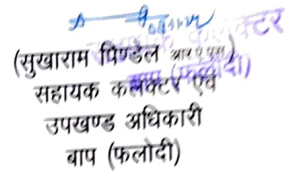 (सुखाराम पिण्डेल आर ए एस)
सहायक कलेक्टर एवं
उपखण्ड अधिकारी
बाप (फलोदी)